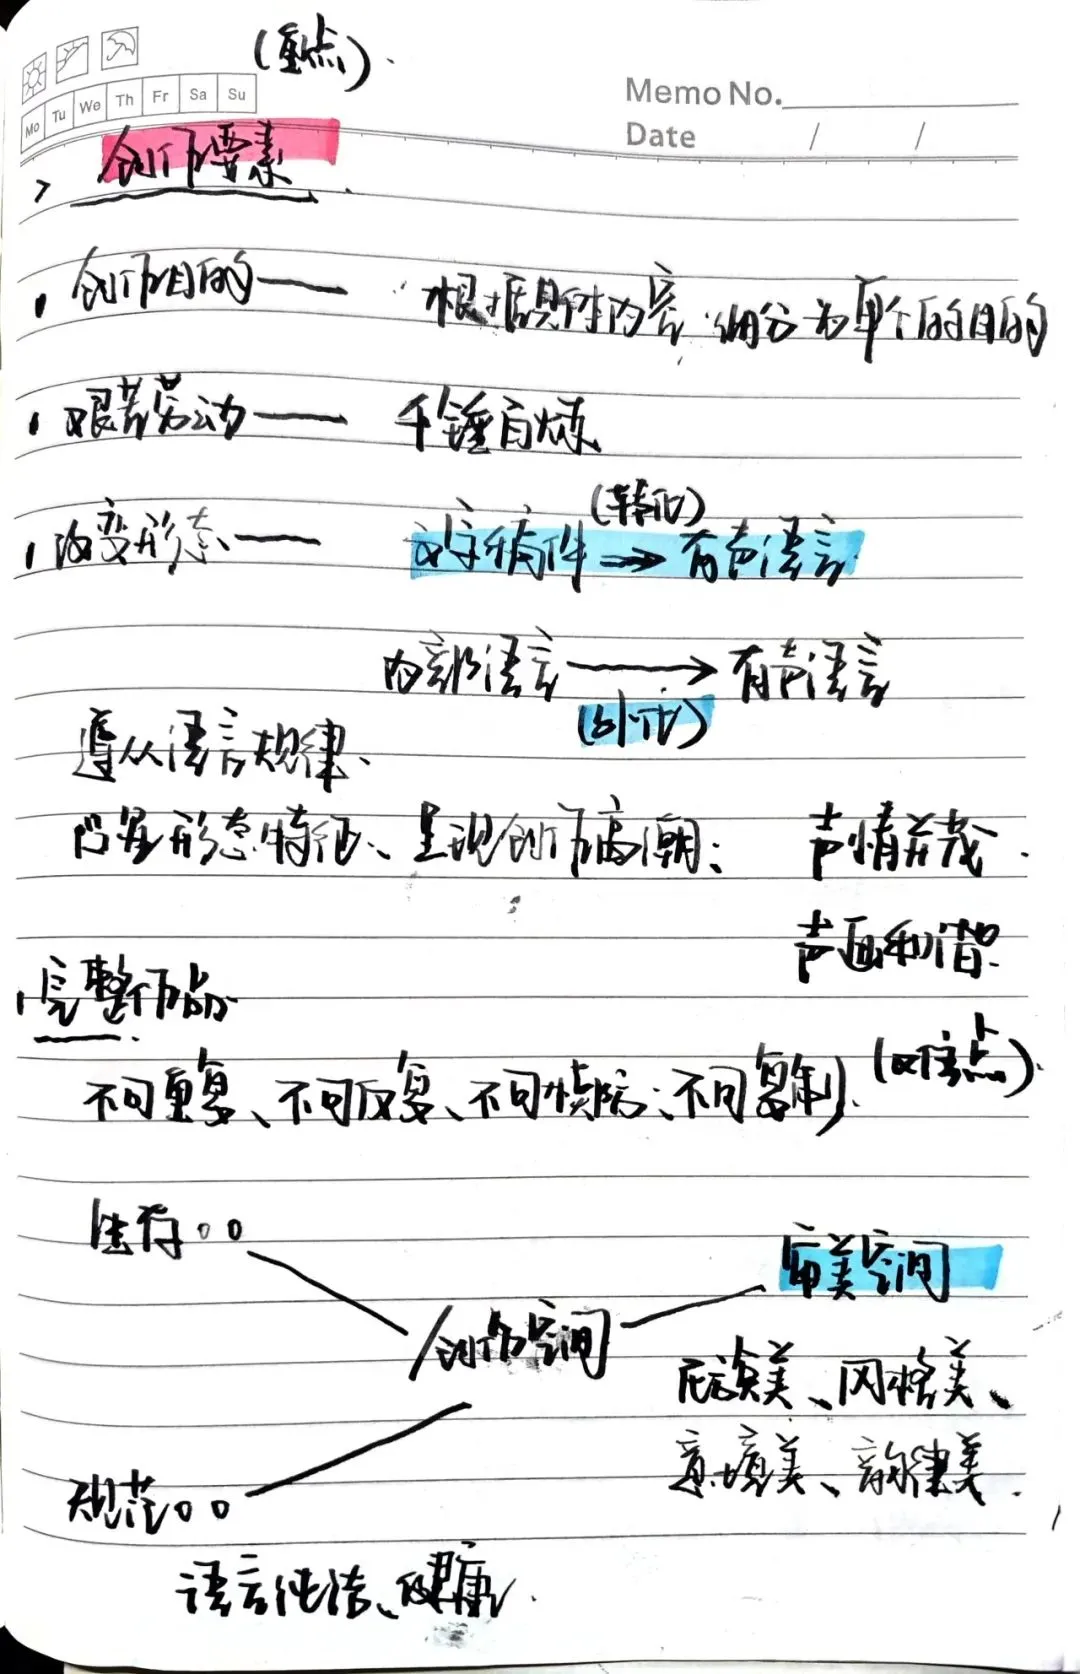 (重点).
Mo Tu We Th Fr Sa Su
Memo No.
Date / /
> 创作要素
创作目的—— 根据具体内容细分为单个的目的
艰苦劳动—— 千锤百炼
改变形态—— 文字稿件 (转化) → 有声语言
内部语言 → 有声语言
(外化)
遵从语言规律、
凸显形态特征、呈现创作高潮、 声情并茂.
声画和谐.
完整作品.
不可重复、不可反复、不可模仿、不可复制. (难点).
生存○○
审美空间
创作空间
民族美、风格美、
意境美、韵律美.
规范○○
语言纯洁、健康.